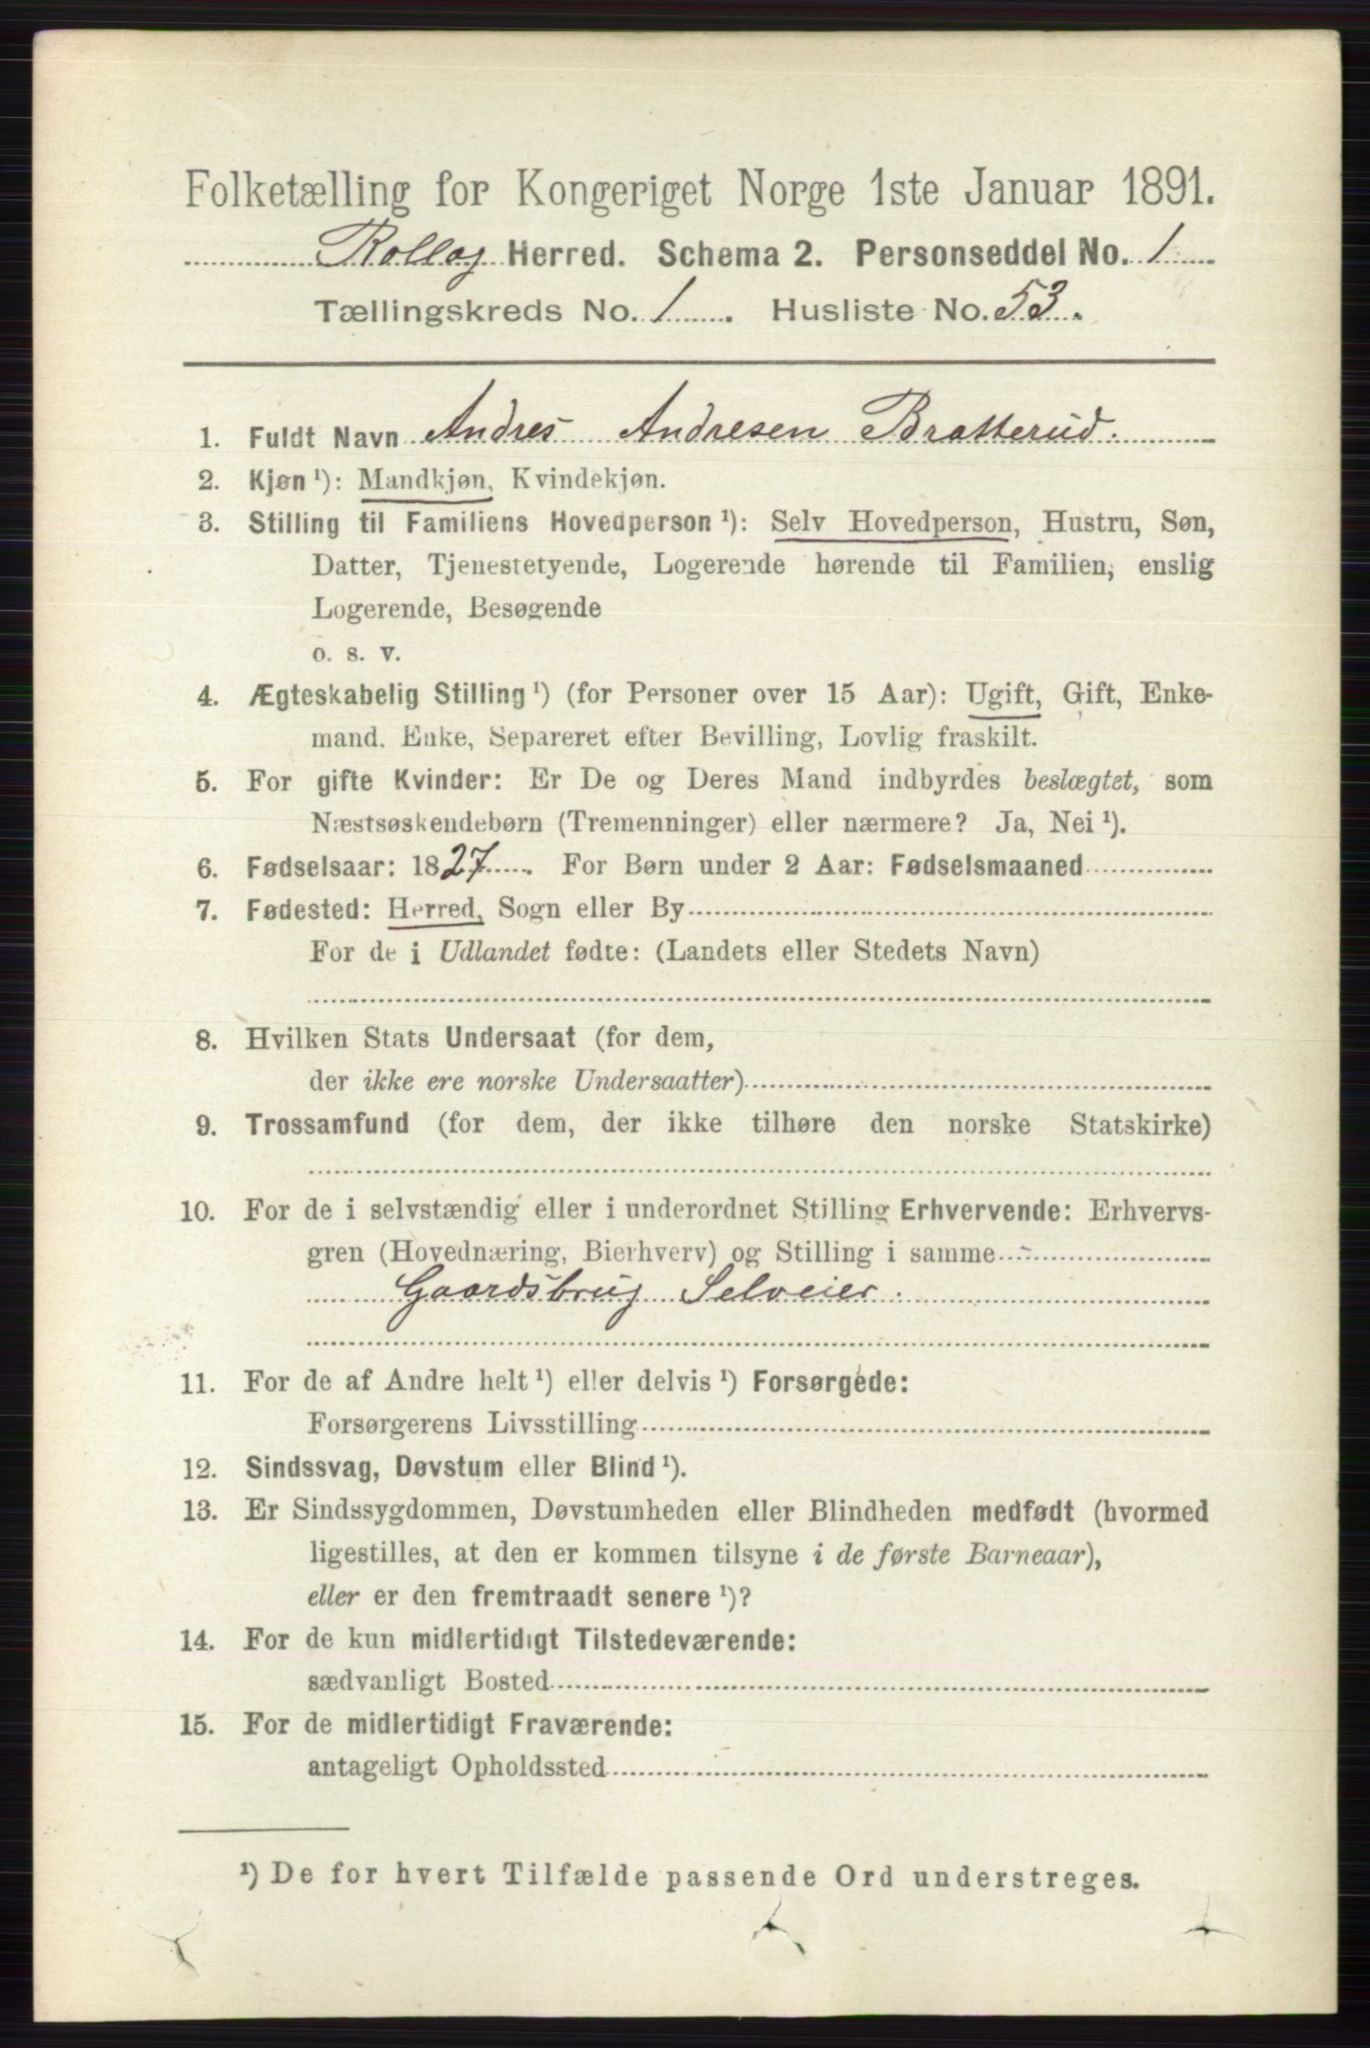 Folketælling for Kongeriget Norge 1ste Januar 1891.
Rollag Herred. Schema 2. Personseddel No. 1
Tællingskreds No. 1. Husliste No. 53.
1. Fuldt Navn Andres Andresen Bratterud.
2. Kjøn ¹): Mandkjøn, Kvindekjøn.
3. Stilling til Familiens Hovedperson ¹): Selv Hovedperson, Hustru, Søn,
Datter, Tjenestetyende, Logerende hørende til Familien, enslig
Logerende, Besøgende
o. s. v.
4. Ægteskabelig Stilling ¹) (for Personer over 15 Aar): Ugift, Gift, Enke-
mand. Enke, Separeret efter Bevilling, Lovlig fraskilt.
5. For gifte Kvinder: Er De og Deres Mand indbyrdes beslægtet, som
Næstsøskendebørn (Tremenninger) eller nærmere? Ja, Nei ¹).
6. Fødselsaar: 1827. For Børn under 2 Aar: Fødselsmaaned
7. Fødested: Herred, Sogn eller By
For de i Udlandet fødte: (Landets eller Stedets Navn)
8. Hvilken Stats Undersaat (for dem,
der ikke ere norske Undersaatter)
9. Trossamfund (for dem, der ikke tilhøre den norske Statskirke)
10. For de i selvstændig eller i underordnet Stilling Erhvervende: Erhvervs-
gren (Hovednæring, Bierhverv) og Stilling i samme
Gaardsbrug Selveier.
11. For de af Andre helt ¹) eller delvis ¹) Forsørgede:
Forsørgerens Livsstilling
12. Sindssvag, Døvstum eller Blind ¹).
13. Er Sindssygdommen, Døvstumheden eller Blindheden medfødt (hvormed
ligestilles, at den er kommen tilsyne i de første Barneaar),
eller er den fremtraadt senere ¹)?
14. For de kun midlertidigt Tilstedeværende:
sædvanligt Bosted
15. For de midlertidigt Fraværende:
antageligt Opholdssted
¹) De for hvert Tilfælde passende Ord understreges.